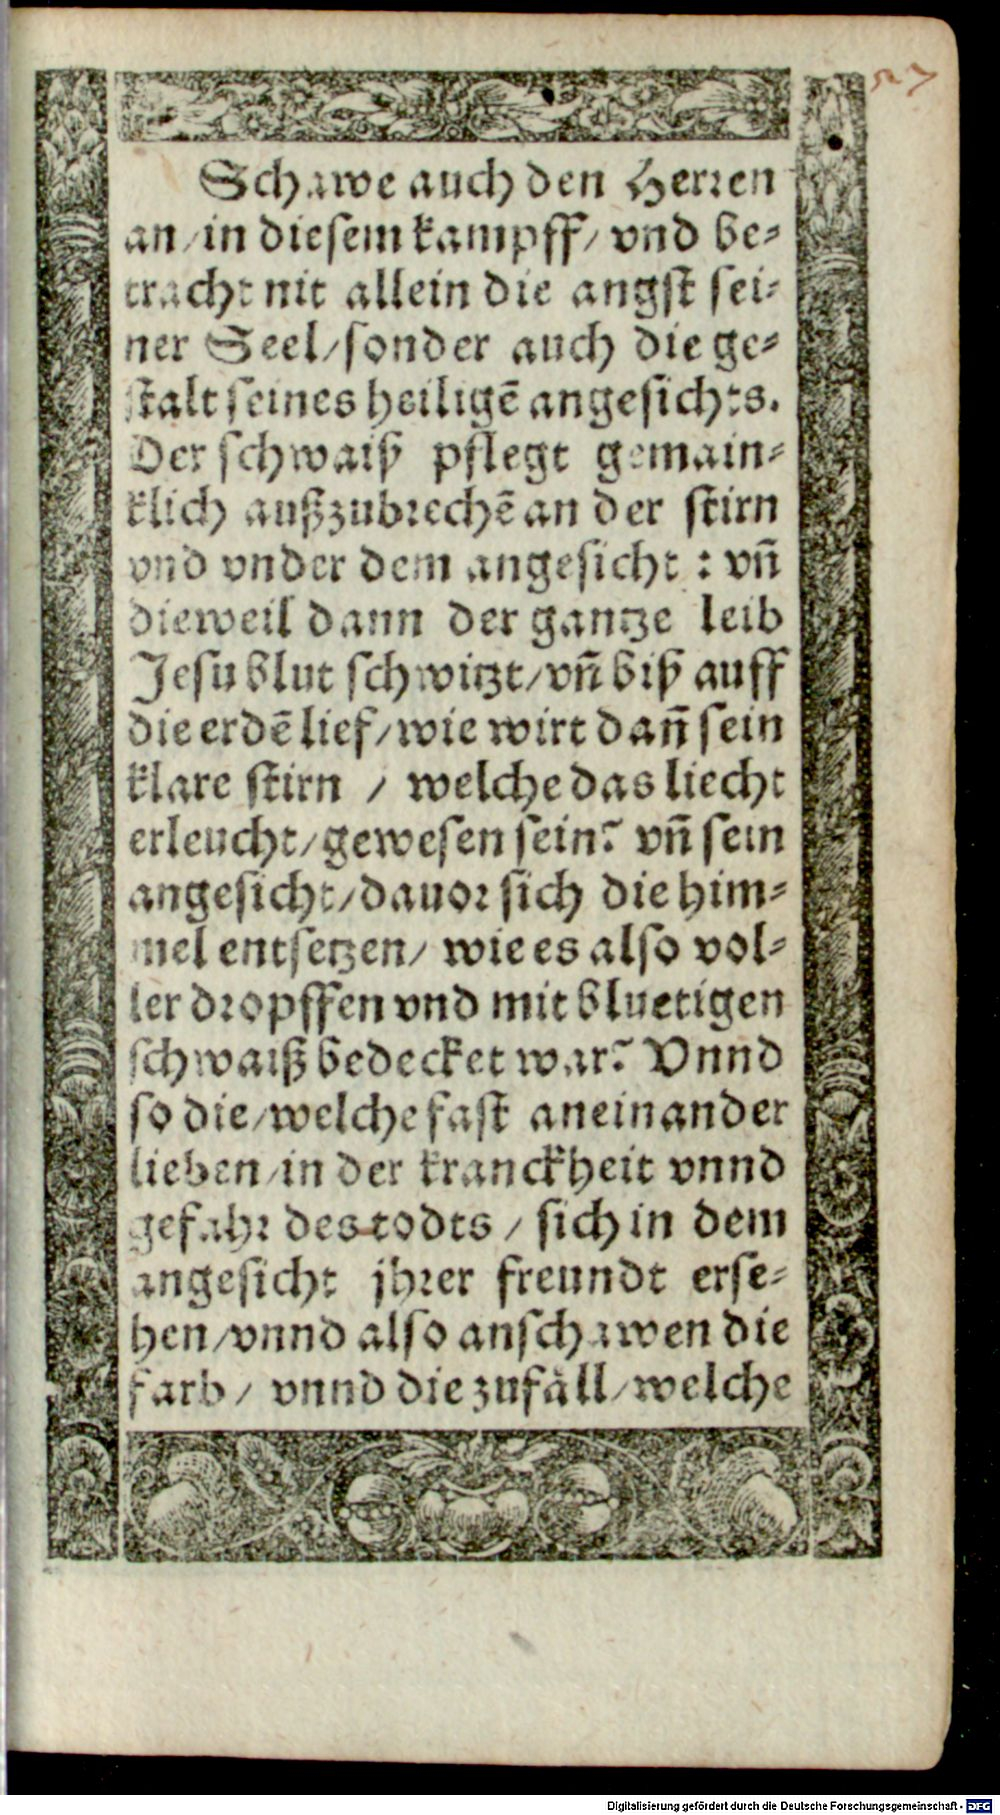 57
Schawe auch den Herren
an/in diesem kampff/ vnd be-
tracht nit allein die angst sei-
ner Seel/sonder auch die ge-
stalt seines heiligē angesichts.
Der schwaiß pflegt gemain-
klich außzubrechē an der stirn
vnd vnder dem angesicht : vñ
dieweil dann der gantze leib
Jesu blut schwitzt/vñ biß auff
die erdē lief/wie wirt dañ sein
klare stirn / welche das liecht
erleucht/gewesen sein? vñ sein
angesicht/dauor sich die him-
mel entsetzen/ wie es also vol-
ler dropffen vnd mit bluetigen
schwaiß bedecket war? Vnnd
so die/welche fast aneinander
lieben/in der kranckheit vnnd
gefahr des todts / sich in dem
angesicht jhrer freundt erse-
hen/vnnd also anschawen die
farb/ vnnd die zufäll/welche
Digitalisierung gefördert durch die Deutsche Forschungsgemeinschaft - DFG